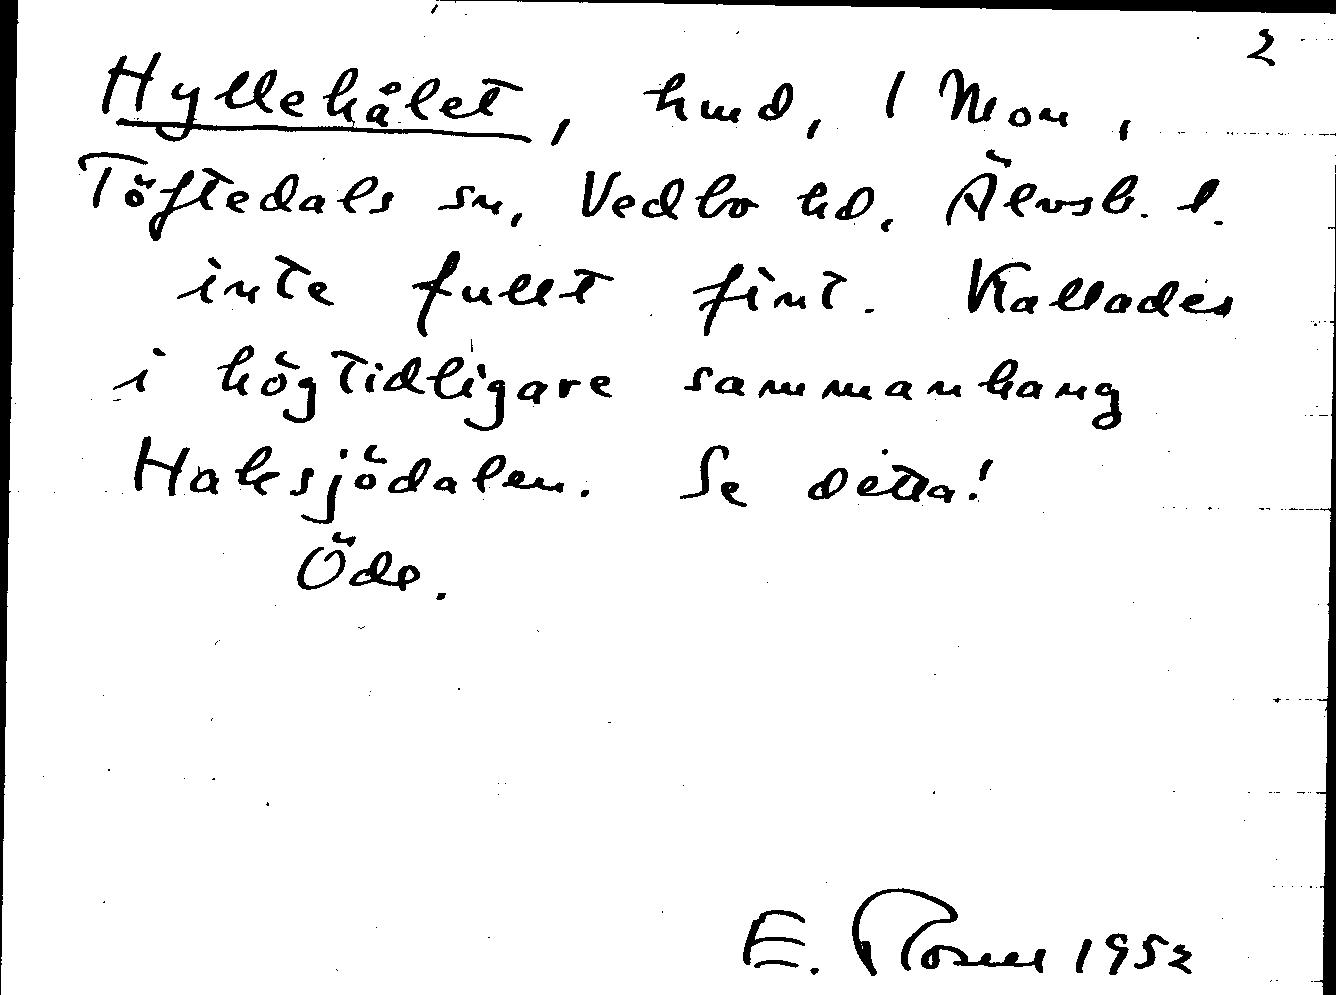 2
Hyllehålet, hmd, 1 Mon,
Töftedals sn, Vedbo hd. Älvsb. l.
inte fullt fint. Kallades
i högtidligare sammanhang
Haksjödalen. Se detta!
Öde.
E. Rosell 1952